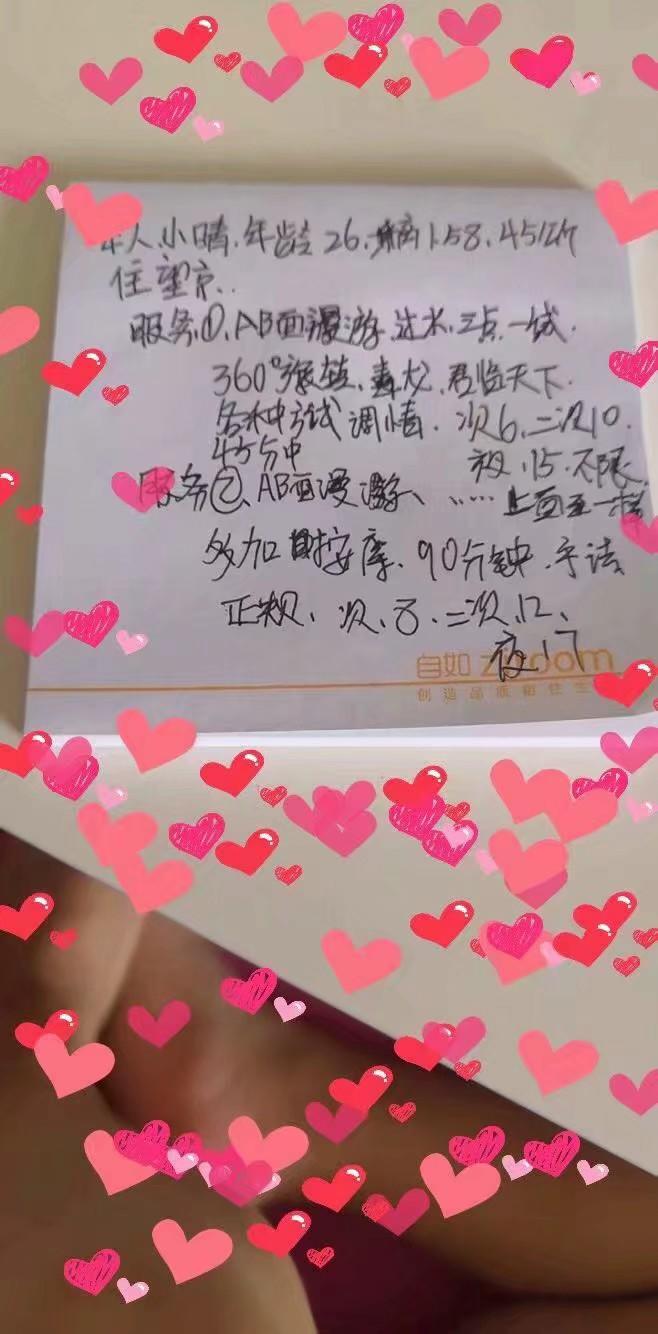 本人.小晴.年龄26.高1.58.45公斤
住望京..
服务①.AB面漫游.过水.三点一线.
360°.毒龙.君临天下.
各种调情.次6.二次10.
45分中
夜.15.不限
服务②、AB面漫游、……上面一样
多加按摩.90分钟.手法
正规、次、8、二次、12、
夜、17
自如 ziroom
创造品质租住生